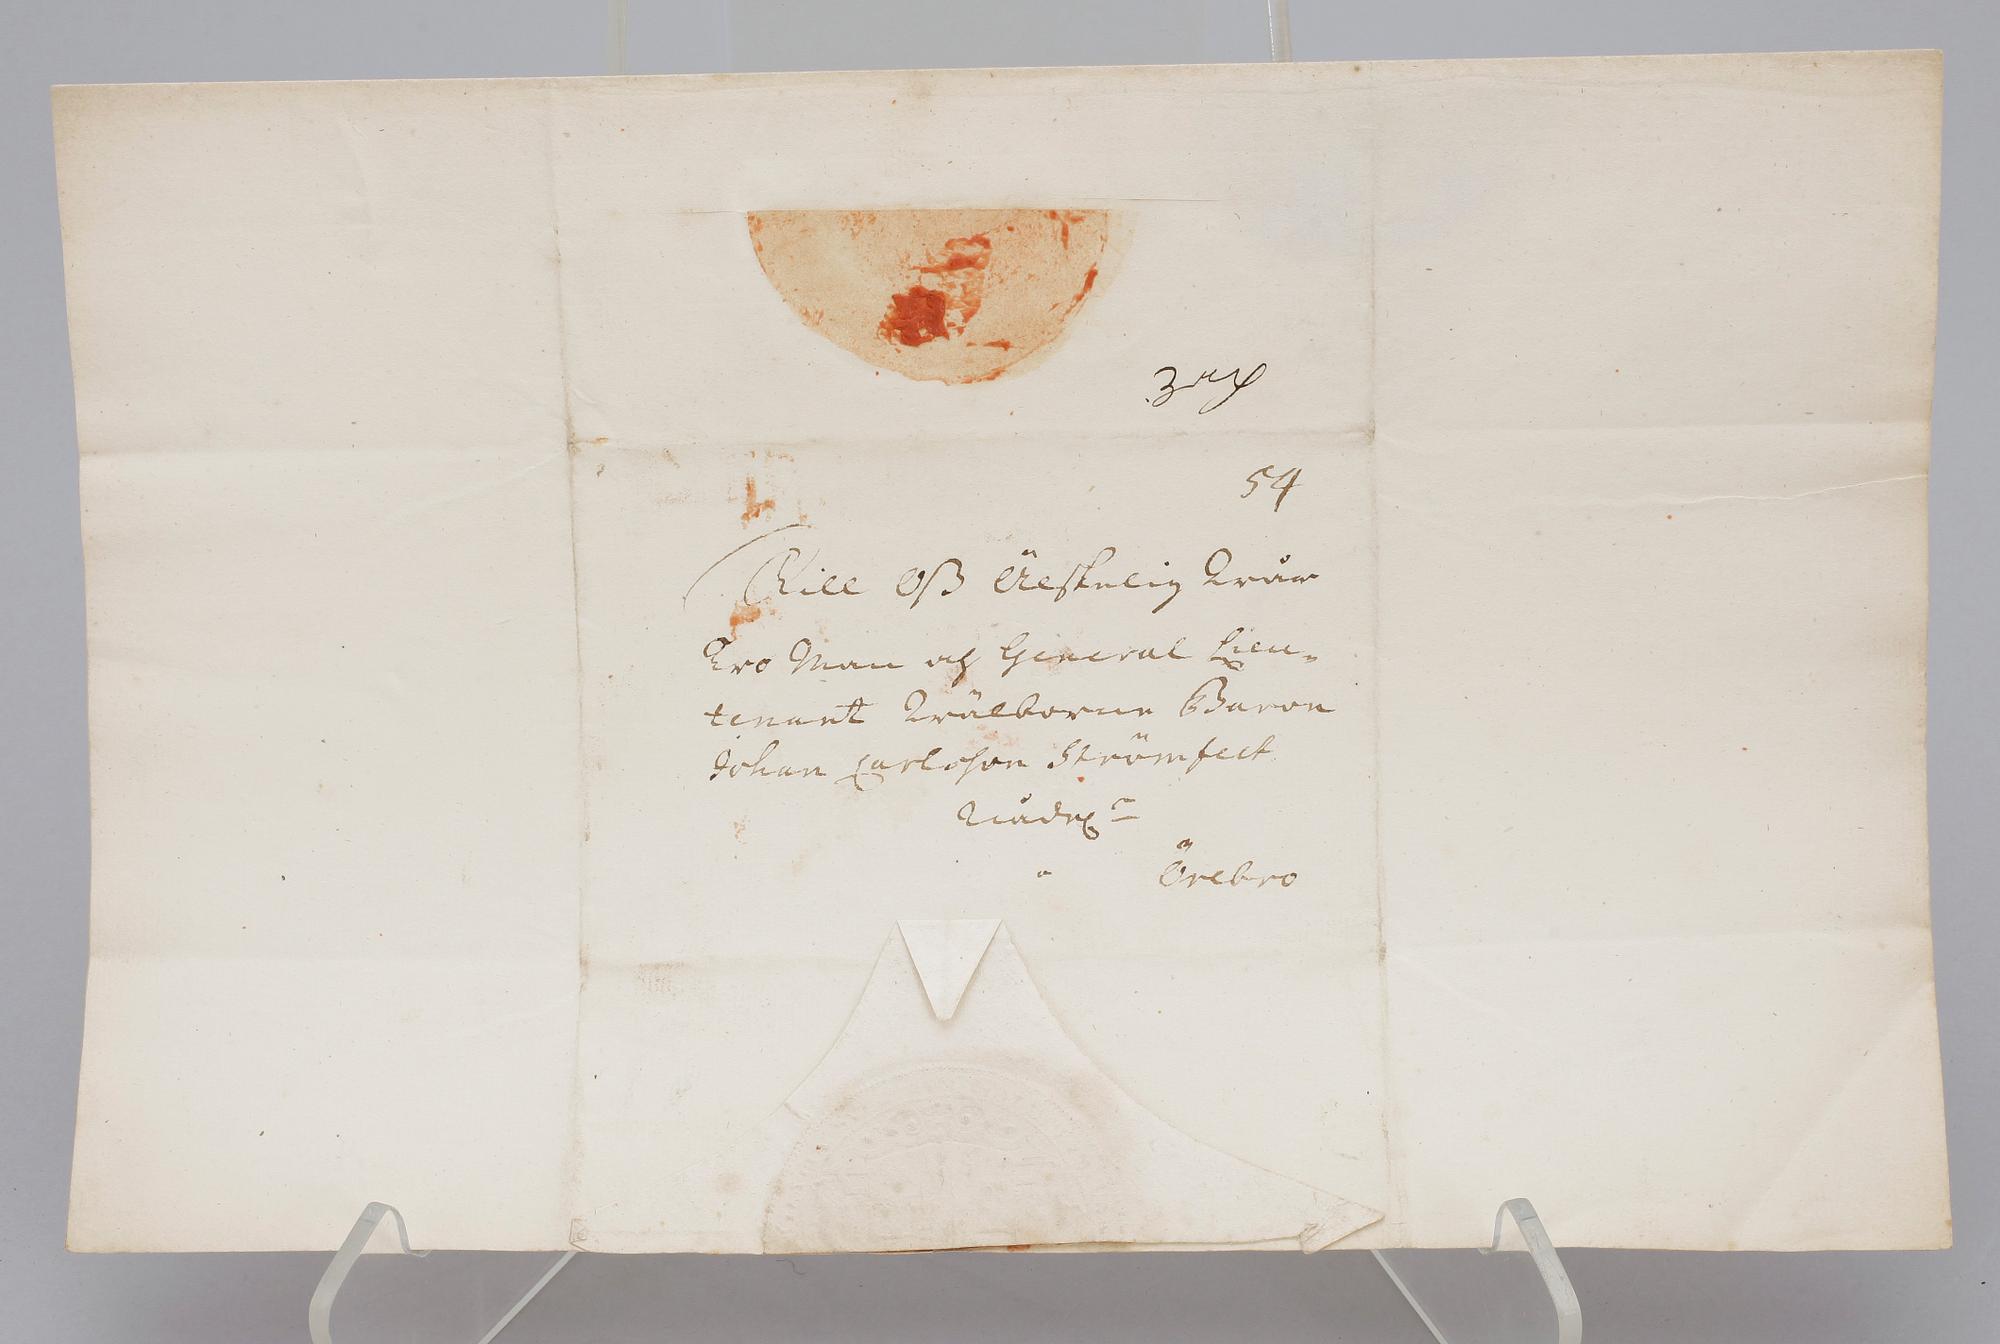 54
Till Oß Älskelig Wår
Tro Man och General Lieu-
tenant Wälborne Baron
Johan Carlsson Strömfelt
Örebro